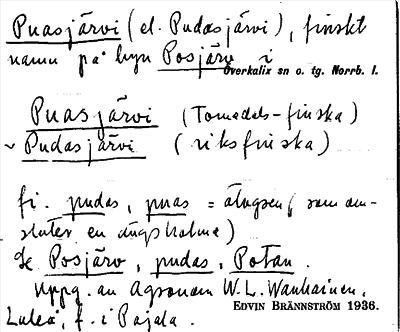 Puasjärvi (el. Pudasjärvi), finskt
namn på byn Posjärv i
Överkalix sn o. tg. Norrb. l.
Puasjärvi (Tornedals-finska)
~ Pudasjärvi (riksfinska)
fi. pudas, puas = älvgren (som om-
sluter en ängsholme)
Se Posjärv, pudas, Potan.
Uppg. av Agronom W. L. Wanhainen,
Luleå, f. i Pajala.
EDVIN BRÄNNSTRÖM 1936.